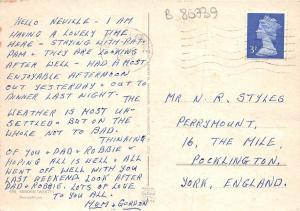 B 86739
HELLO NEVILLE - I AM
HAVING A LOVELY TIME
HERE - STAYING WITH PAT.
PAM + THEY ARE LOOKING
AFTER WELL - HAD A MOST
ENJOYABLE AFTERNOON
OUT YESTERDAY + OUT TO
DINNER LAST NIGHT. THE
WEATHER IS MOST UN-
SETTLED - BUT ON THE
WHOLE NOT TO BAD.
THINKING
OF YOU + DAD + ROBBIE +
HOPING ALL IS WELL. ALL
WENT OFF WELL WITH YOU
LAST WEEKEND. LOOK AFTER
DAD + ROBBIE. LOTS OF LOVE
TO YOU ALL.
MUM + GORDON
3P
MR N R STYLES
PERRYMOUNT,
16, THE MILE,
POCKLINGTON,
YORK, ENGLAND.